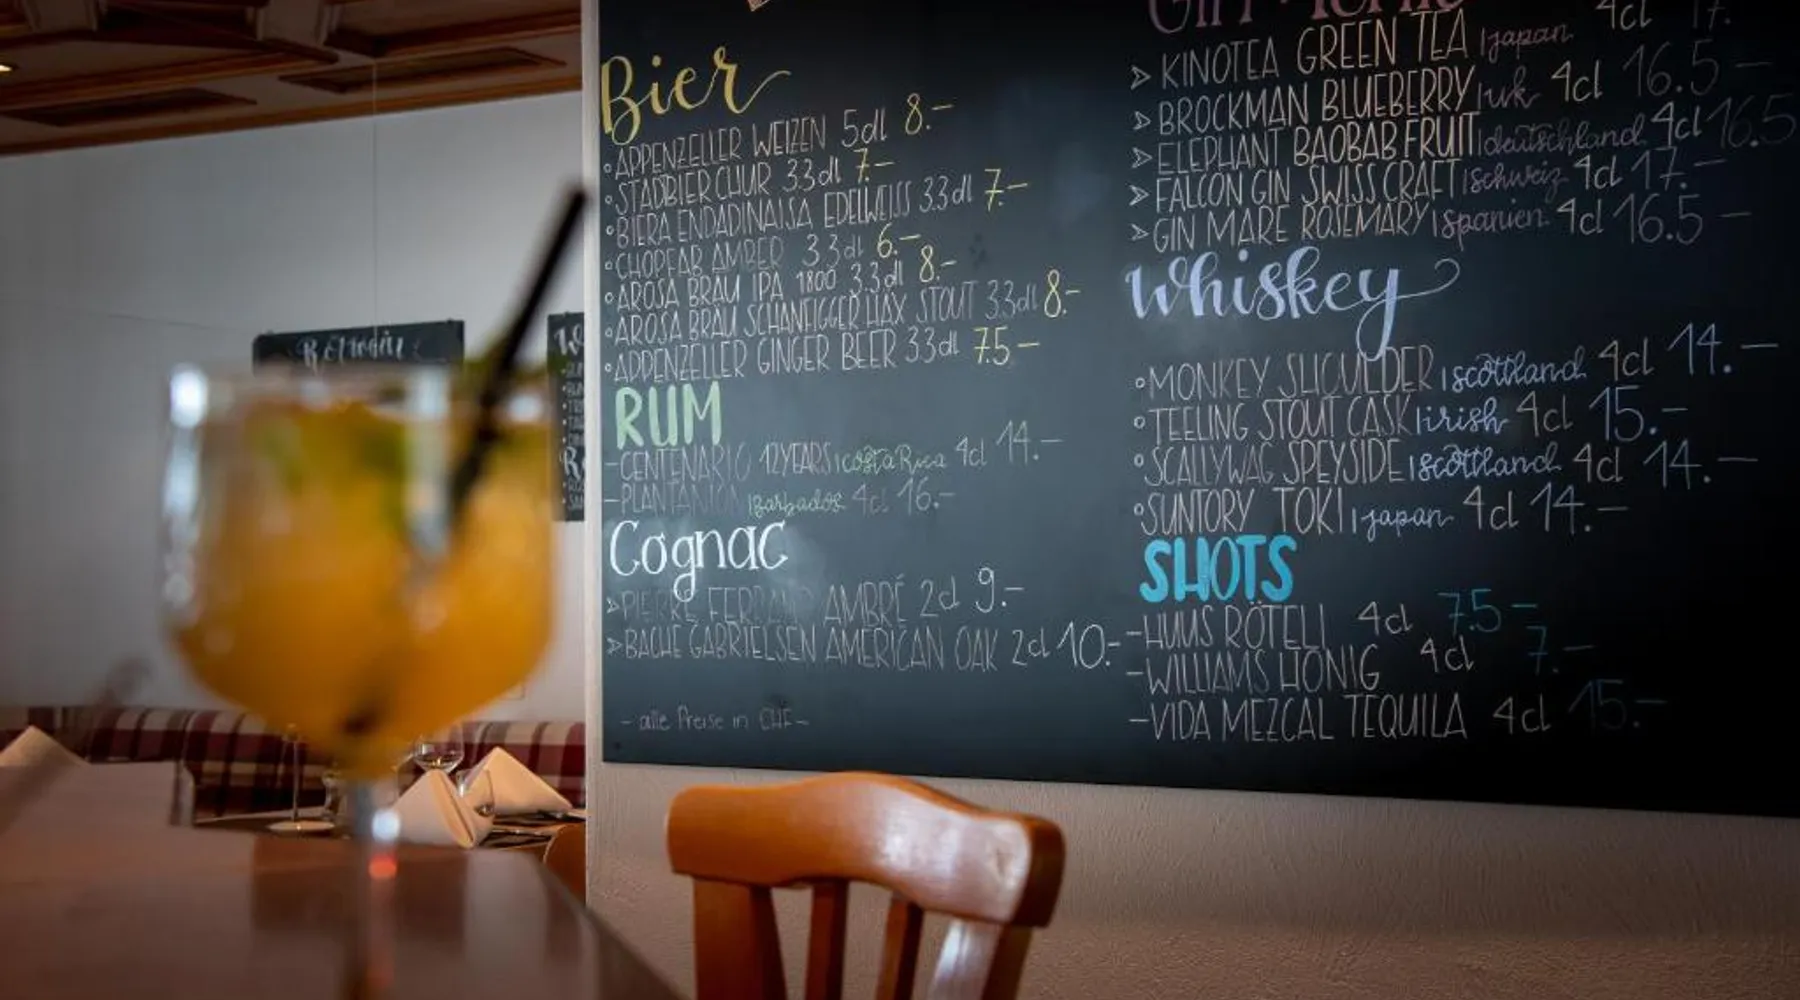 Bier
APPENZELLER WEIZEN 5dl 8.-
STADBIER CHUR 33dl 7.-
BIERA ENDADINAISA EDELWEISS 33dl 7.-
CHOPFAB AMBER 33dl 6.-
AROSA BRÄU IPA 1800 33dl 8.-
AROSA BRÄU SCHANFIGGER HAX STOUT 33dl 8.-
APPENZELLER GINGER BEER 33dl 7.5-
RUM
-CENTENARIO 12YEARS|Costa Rica 4cl 14.-
-PLANTANION |Barbados 4cl 16.-
Cognac
PIERRE FERRAND AMBRÉ 2cl 9.-
BACHE GABRIELSEN AMERICAN OAK 2cl 10.-
- alle Preise in CHF -
Gin & Tonic
KINOTEA GREEN TEA |japan 4cl 17.
BROCKMAN BLUEBERRY|uk 4cl 16.5-
ELEPHANT BAOBAB FRUIT|deutschland 4cl 16.5
FALCON GIN SWISS CRAFT|schweiz 4cl 17.-
GIN MARE ROSEMARY|spanien 4cl 16.5-
Whiskey
MONKEY SHOULDER|scottland 4cl 14.-
TEELING STOUT CASK|irish 4cl 15.-
SCALLYWAG SPEYSIDE|scottland 4cl 14.-
SUNTORY TOKI|japan 4cl 14.-
SHOTS
-HUUS RÖTELI 4cl 7.5-
-WILLIAMS HONIG 4cl 7.-
-VIDA MEZCAL TEQUILA 4cl 15.-